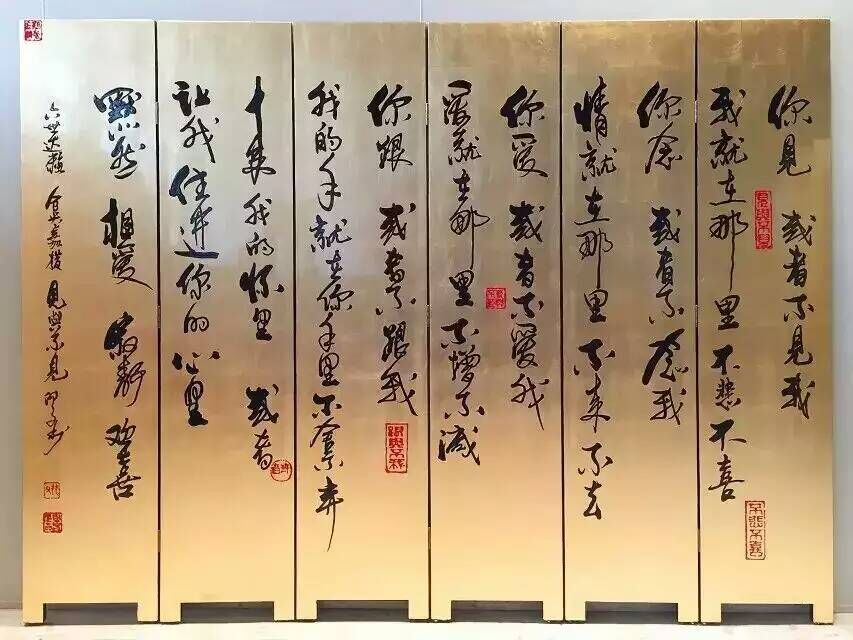 你見 或者不見我
見與不見
我就在那里 不悲不喜
不悲不喜
你念 或者不念我
情就在那里 不来不去
你愛 或者不愛我
愛就在那里 不增不减
你跟 或者不跟我
我的手就在你手里 不舍不弃
来我的怀里 或者
让我住进你的心里
默然 相愛 寂静 欢喜
六世达赖 仓央嘉措 見與不見